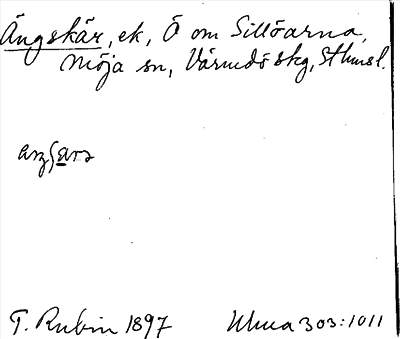 Ängskär, ek, Ö om Sillöarna,
Möja sn, Värmdö skg, Sthmsl.
T. Rubin 1897 Uluca 303:1011